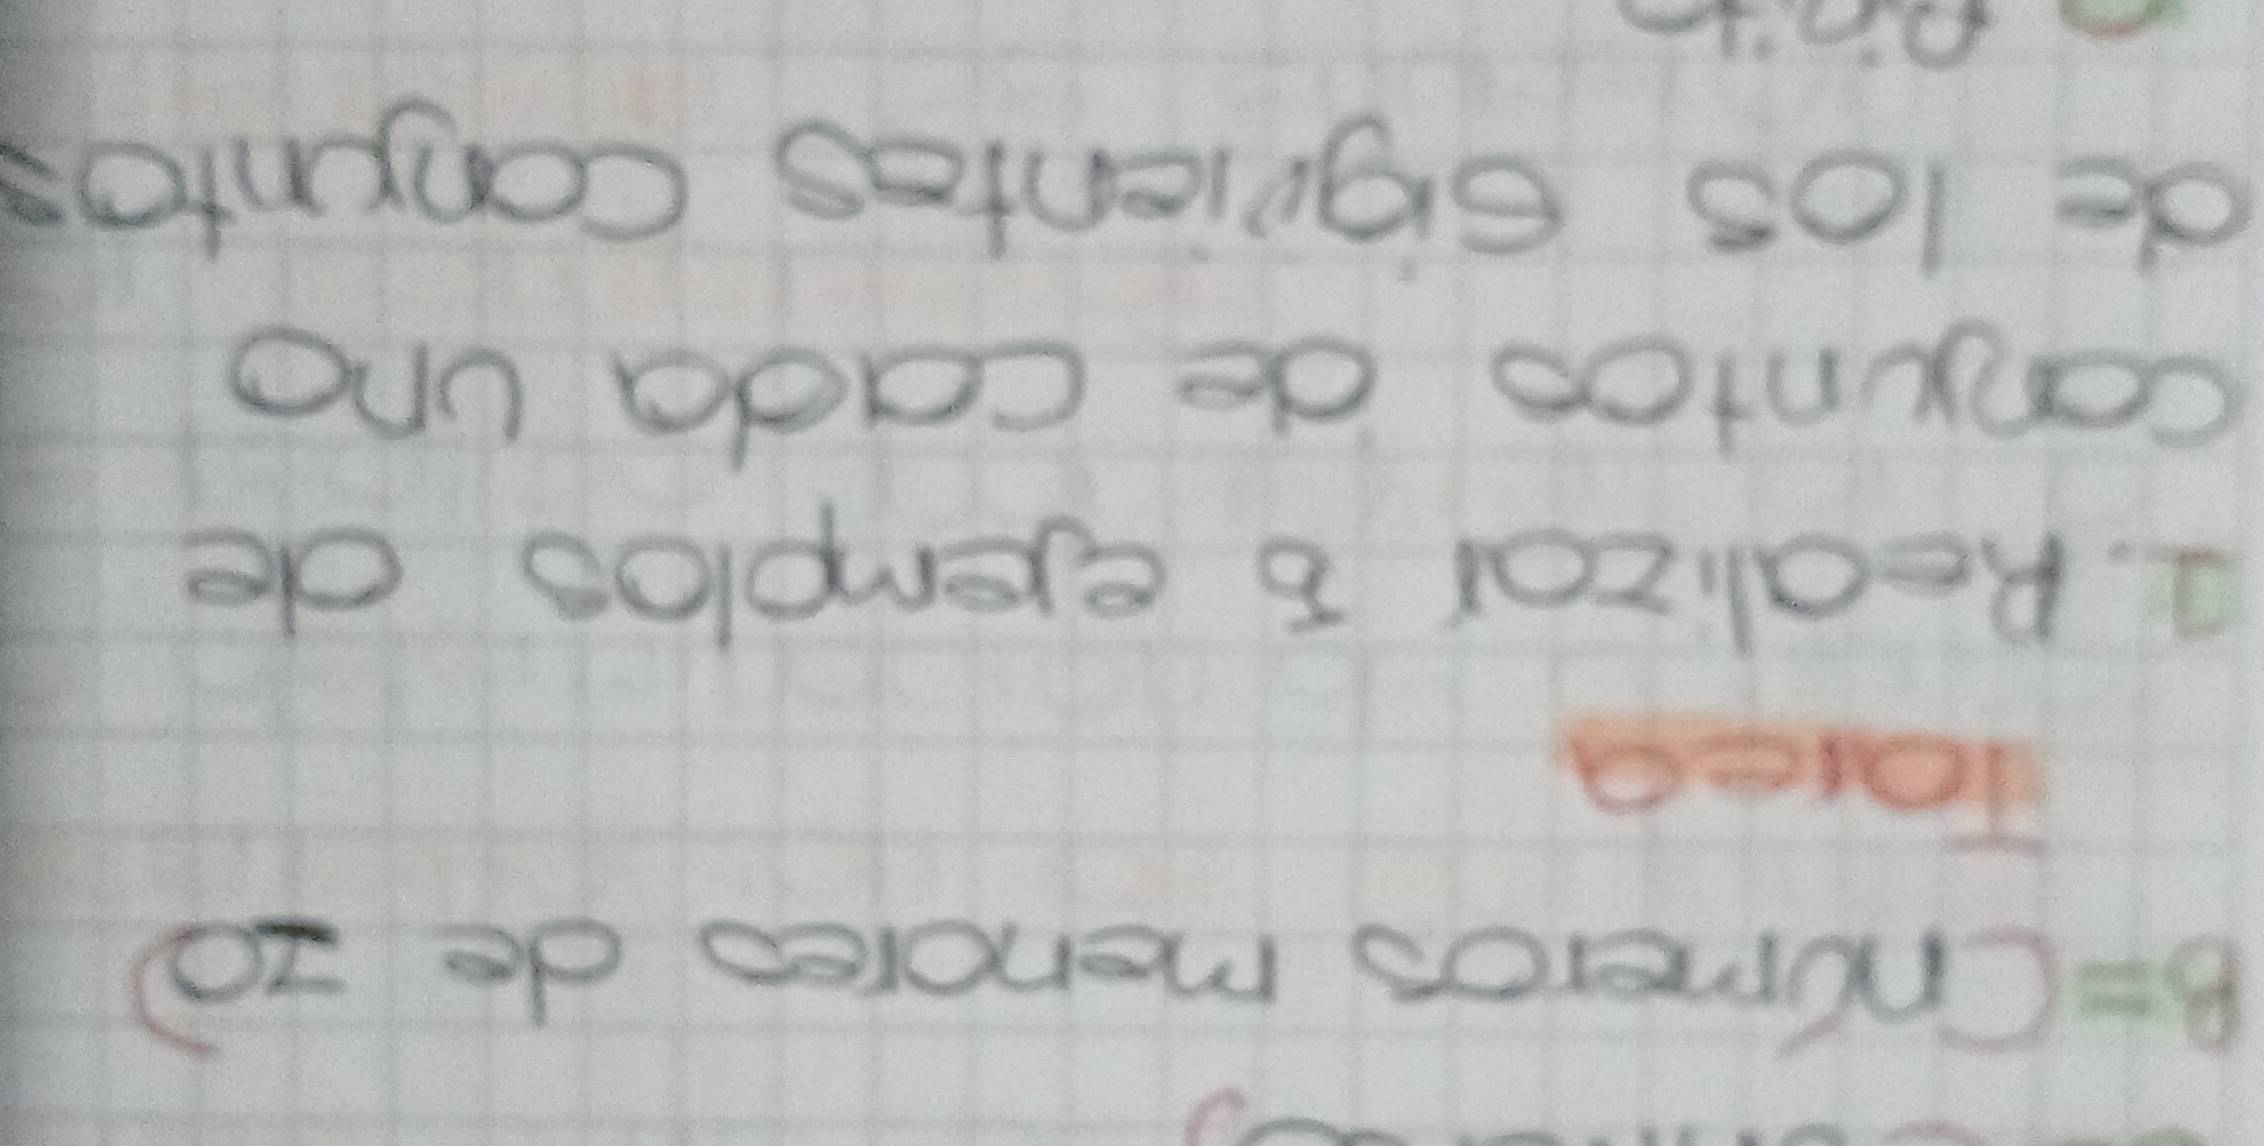 B=(números menores de 10)
Tarea
1. Realizar 5 ejemplos de
conjuntos de cada uno
de los siguientes conjuntos